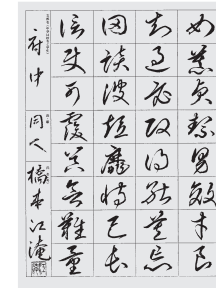 女慕貞絜男效才良
知過必改得能莫忘
罔談彼短靡恃己長
信使可覆器欲難量
府中
同人
橋本江